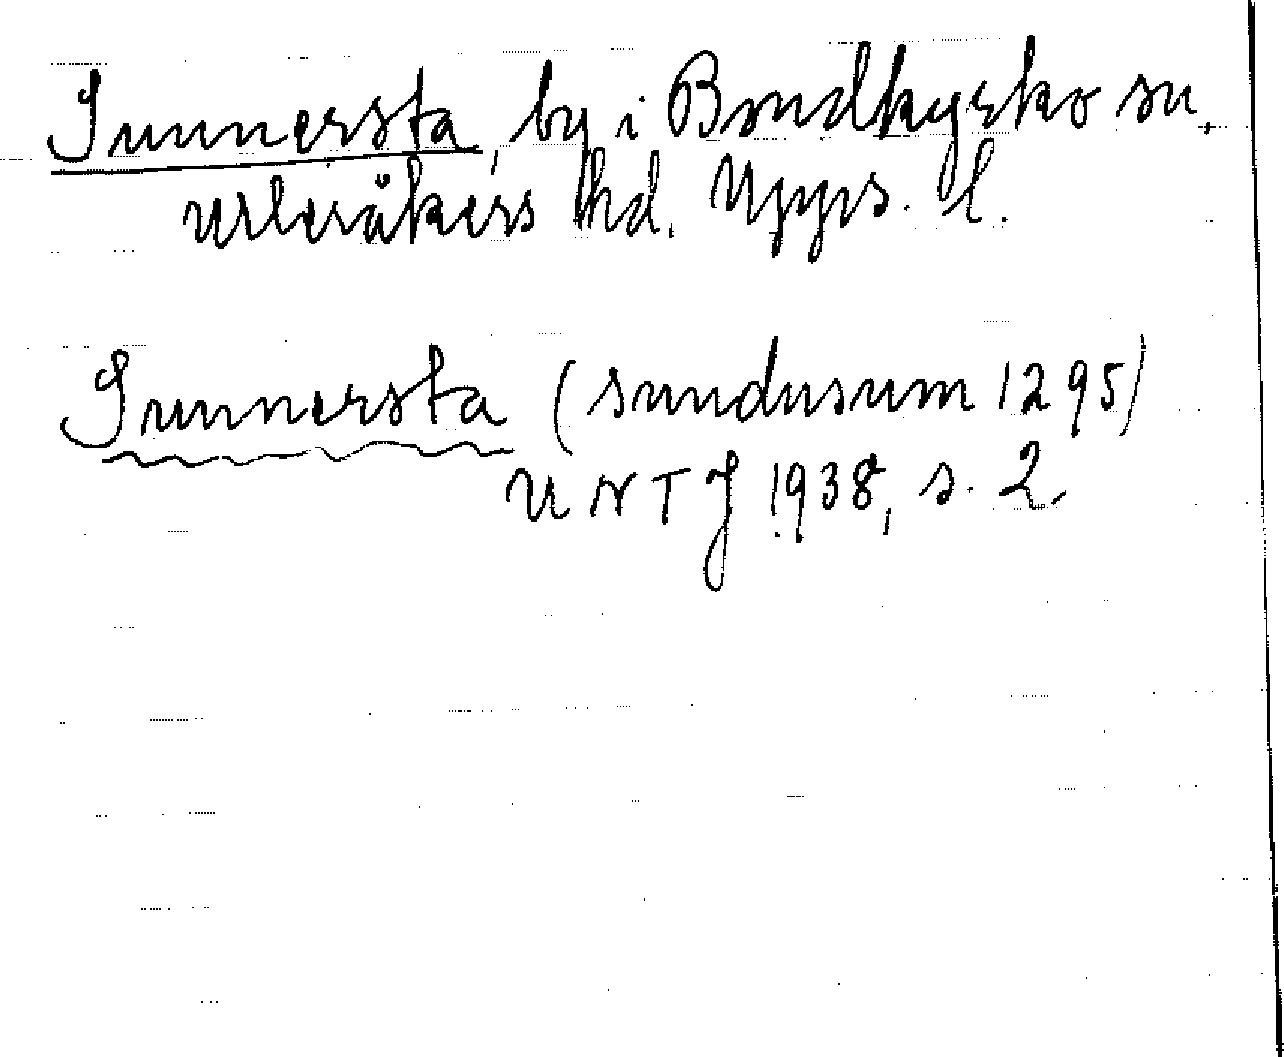 Sunnersta, by i Bondkyrko sn,
Ulleråkers hd. Upps. l.
Sunnersta (sundusum 1295)
UNTJ 1938, s. 2